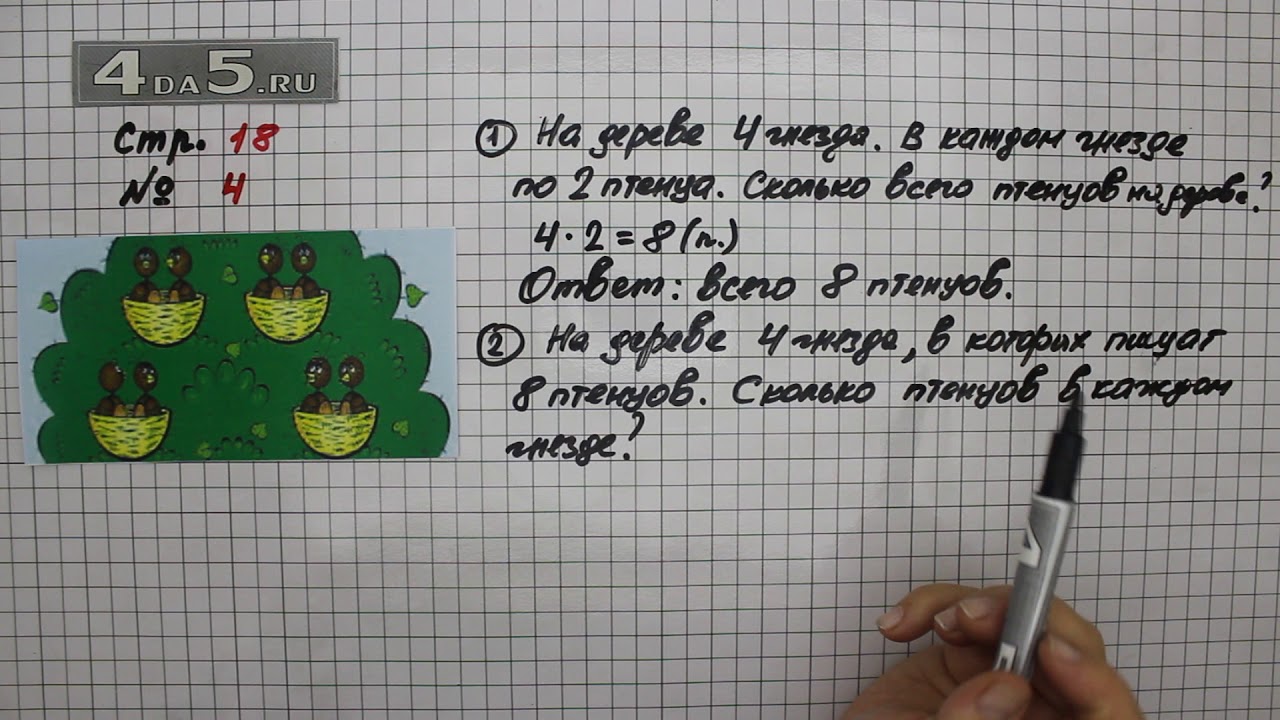 4DA5.RU
Стр. 18
№ 4
① На дереве 4 гнезда. В каждом гнезде
по 2 птенца. Сколько всего птенцов на дереве?
4 · 2 = 8 (п.)
Ответ: всего 8 птенцов.
② На дереве 4 гнезда, в которых пищат
8 птенцов. Сколько птенцов в каждом
гнезде?